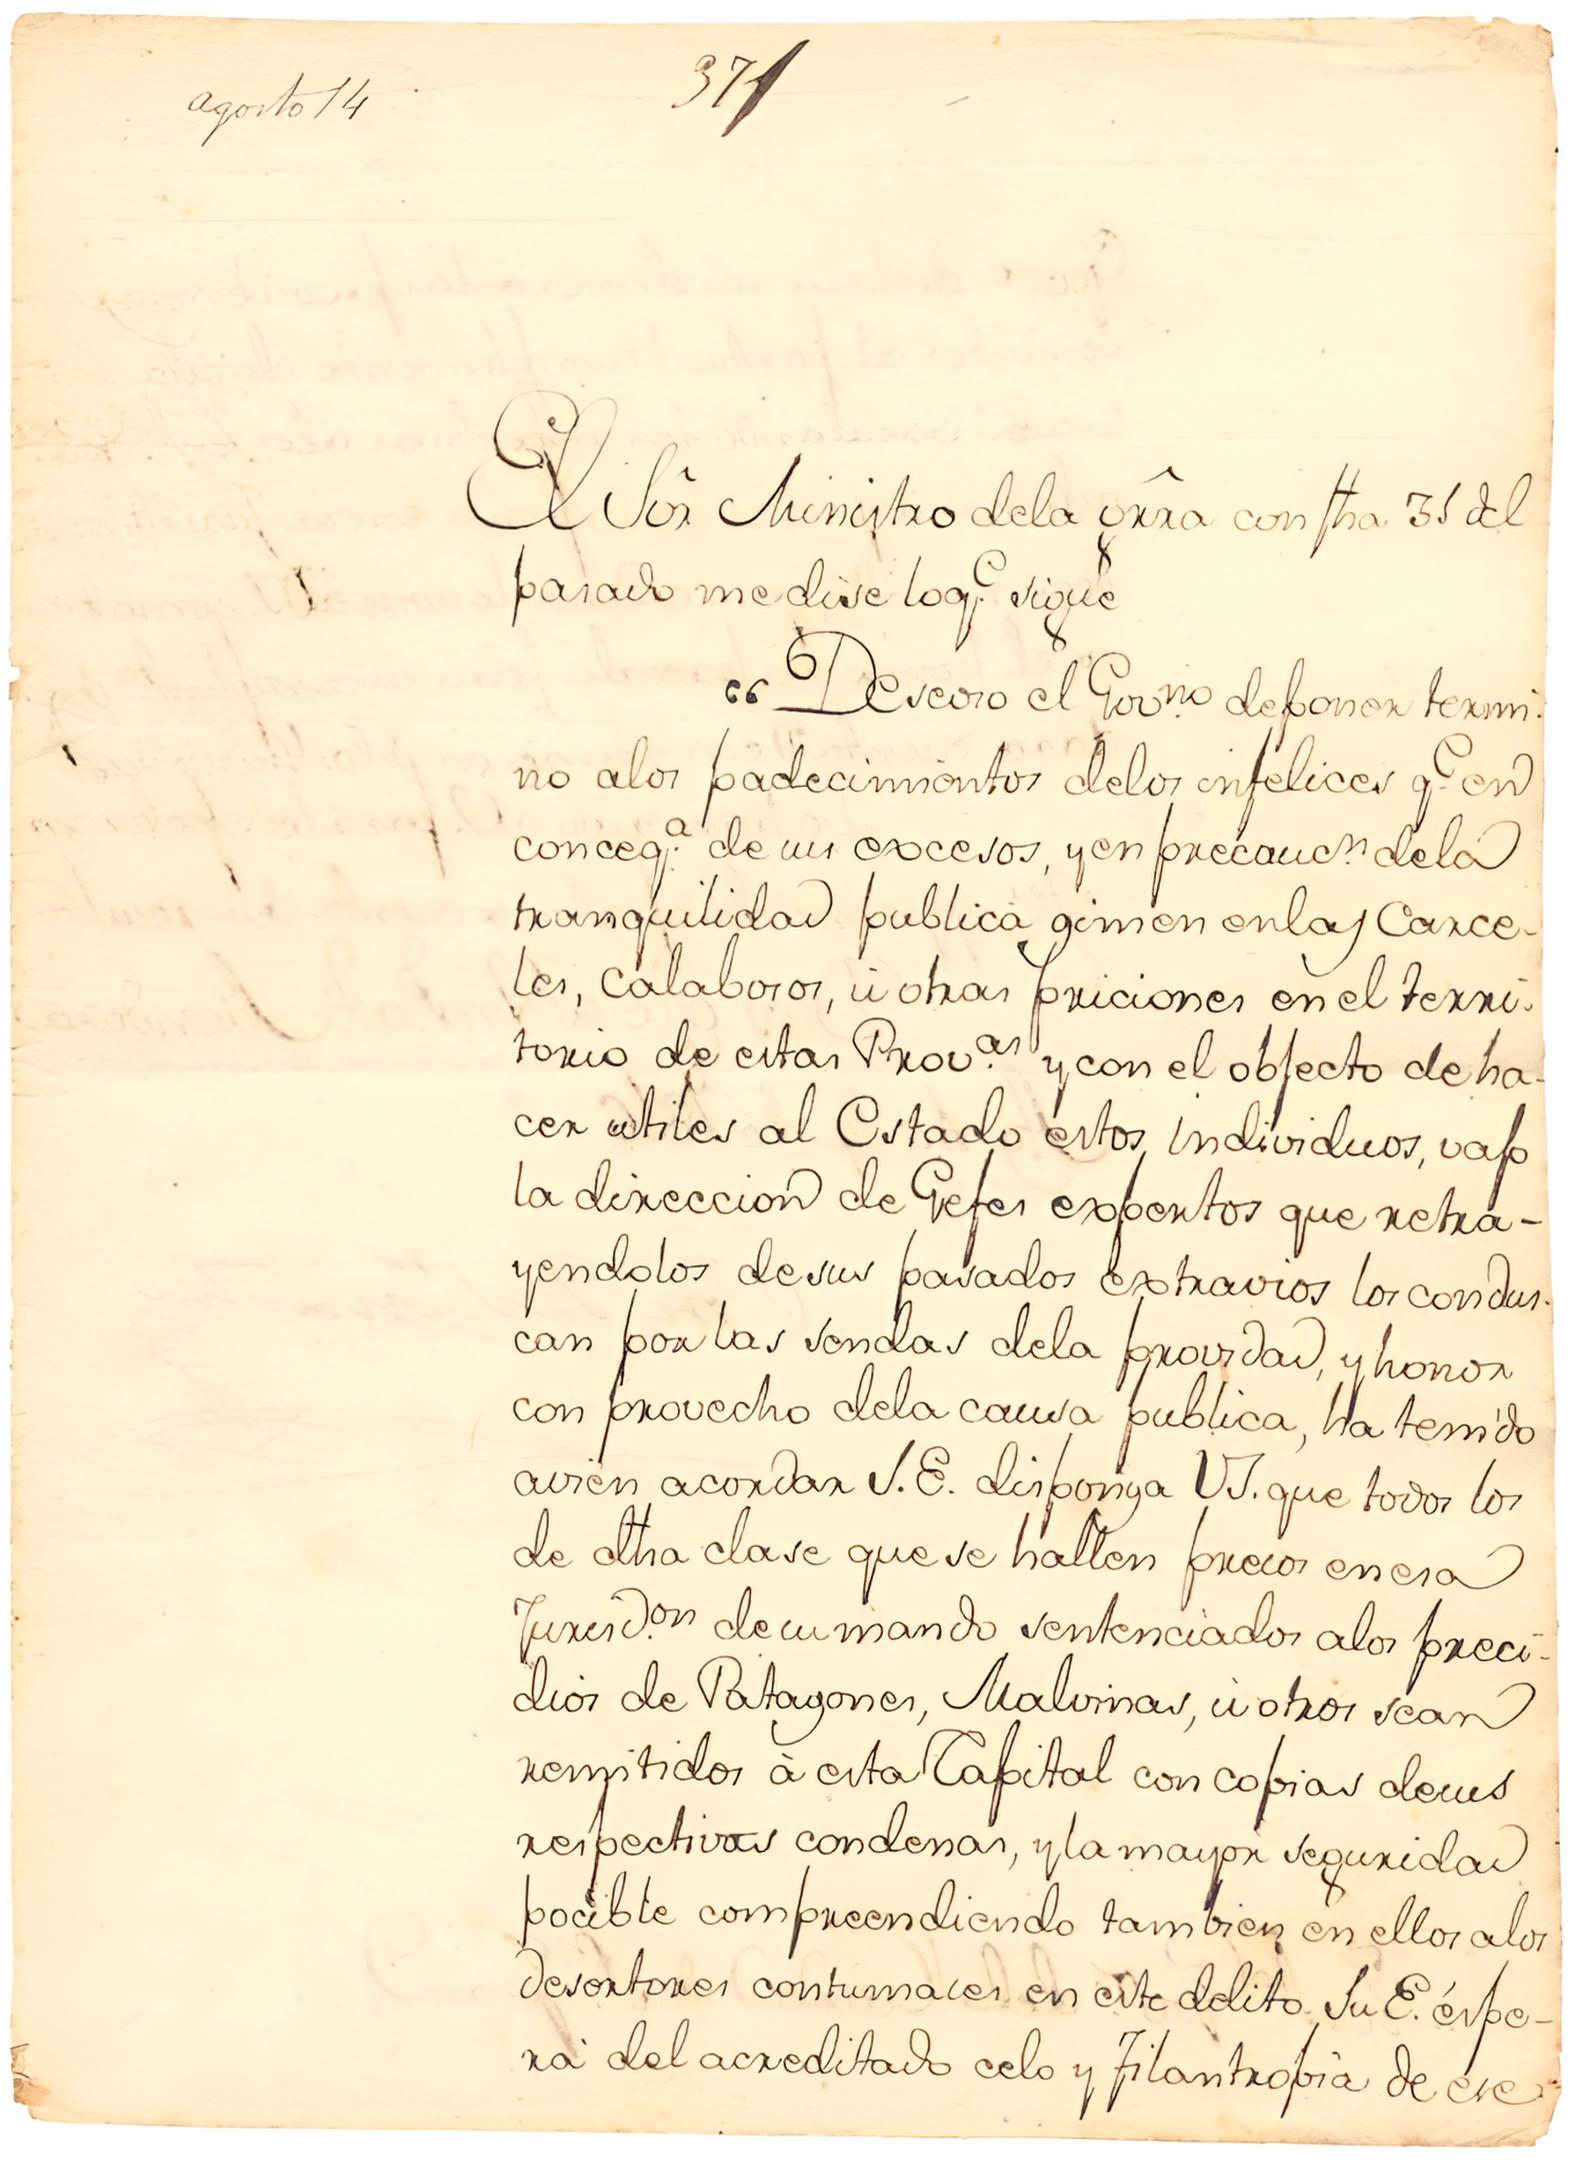 agosto 14
37
El Sōr Ministro dela grra con fha 31 del
pasado me dise loq.e sigue
"Deseoso el Gov.no deponer termi-
no alos padecimientos delos infelices q.e en
conceq.a de sus excesos, y en precauc.n dela
tranquilidad publica gimen enlas Carce-
les, Calabosos, ù otras priciones en el terri-
torio de estas Prov.as y con el objecto de ha-
cer utiles al Estado estos individuos, vajo
la direccion de Gefes expertos que retra-
yendolos desus pasados extravios los condus-
can por las sendas dela providad, y honor
con provecho dela causa publica, ha tenido
avien acordar S.E. disponga VS. que todos los
de dha clase que se hallen presos en esa
Jurisd.on desu mando sentenciados alos preci-
dios de Patagones, Malvinas, ù otros sean
remitidos à esta Capital con copias desus
respectivas condenas, y la mayor seguridad
pocible compreendiendo tambien en ellos alos
desertores contumaces en este delito. Su E. éspe-
ra del acreditado celo y Filantropia de ese